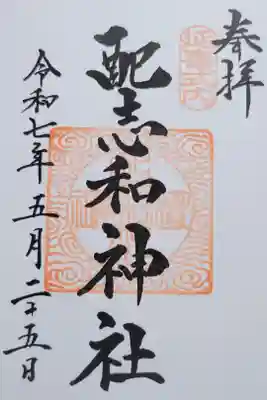 奉拝
配志和神社
令和七年五月二十五日